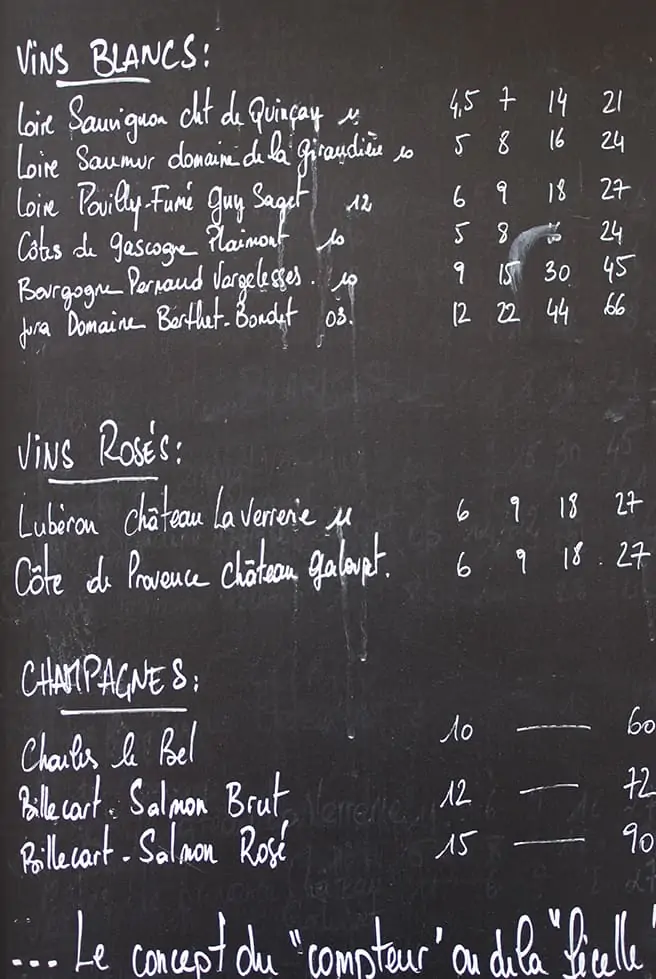 ViNS BLANCS:
Loire Sauvignon cht de Quinçay 11 4,5 7 14 21
Loire Saumur domaine de la giraudière 10 5 8 16 24
Loire Pouilly-Fumé guy Saget 12 6 9 18 27
Côtes de gascogne Plaimont 10 5 8 24
Bourgogne Pernand Vergelesses. 10 9 15 30 45
jura Domaine Berthet-Bondet 03. 12 22 44 66
ViNS ROSÉS:
Lubéron château La Verrerie 11 6 9 18 27
Côte de Provence château galoupet. 6 9 18. 27
CHAMPAGNES:
Charles le Bel 10 — 60
Billecart-Salmon Brut 12 — 72
Billecart-Salmon Rosé 15 — 90
... Le concept du "compteur" ou de la "ficelle"